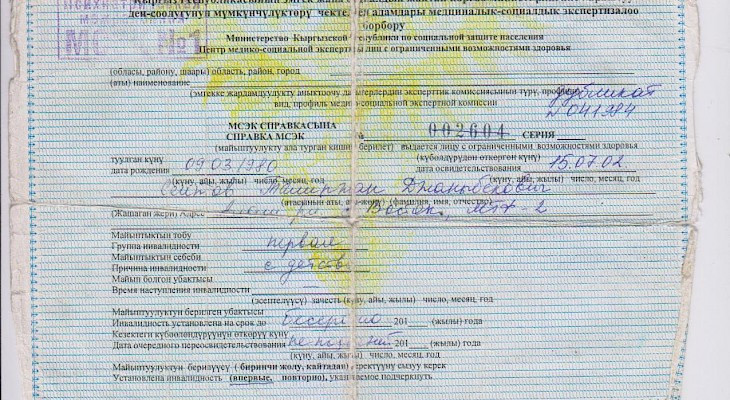 ден-соолугунун мүмкүнчүлүктөрү чектелген адамдары медициналык-социалдык экспертизалоо
борбору
МСЭК №1
Министерство Кыргызской Республики по социальной защите населения
Центр медико-социальной экспертизы лиц с ограниченными возможностями здоровья
(областы, району, шаары) область, район, город
(аты) наименование
(эмгекке жарамдуулукту аныктоочу дарыгерлердин эксперттик комиссиясынын түрү, профили)
вид, профиль медико-социальной экспертной комиссии
дубликат
№041984
МСЭК СПРАВКАСЫНА
СПРАВКА МСЭК № 002604 СЕРИЯ
(майыптуулукту ала турган кишиге берилет) выдается лицу с ограниченными возможностями здоровья
туулган күнү (күбөлүндүрүүдөн өткөргөн күнү)
дата рождения 09.03.1980 дата освидетельствования 15.07.02
(күнү, айы, жылы) число, месяц, год (күнү, айы, жылы) число, месяц, год
Джаныбекович
(атасынын аты, ата-жөнү) (фамилия, имя, отчество)
(Жашаган жери) Адрес с Восток, МТФ 2
Майыптыктын тобу
Группа инвалидности первая
Майыптыктын себеби
Причина инвалидности с детств
Майып болгон убактысы
Время наступления инвалидности —
(эсептелүүсү) зачесть (күнү, айы, жылы) число, месяц, год
Майыптуулуктун берилген убактысы
Инвалидность установлена на срок до бессрочно 201 (жылы) год
Кезектеги күбөөлөндүрүүнүн өткөрүү күнү
Дата очередного переосвидетельствования 201 (жылы) год
(күнү, айы, жылы) число, месяц, год
Майыптуулуктун берилүүсү ( биринчи жолу, кайтадан) керектүүнү сызуу керек
Установлена инвалидность (впервые, повторно), указанное подчеркнуть